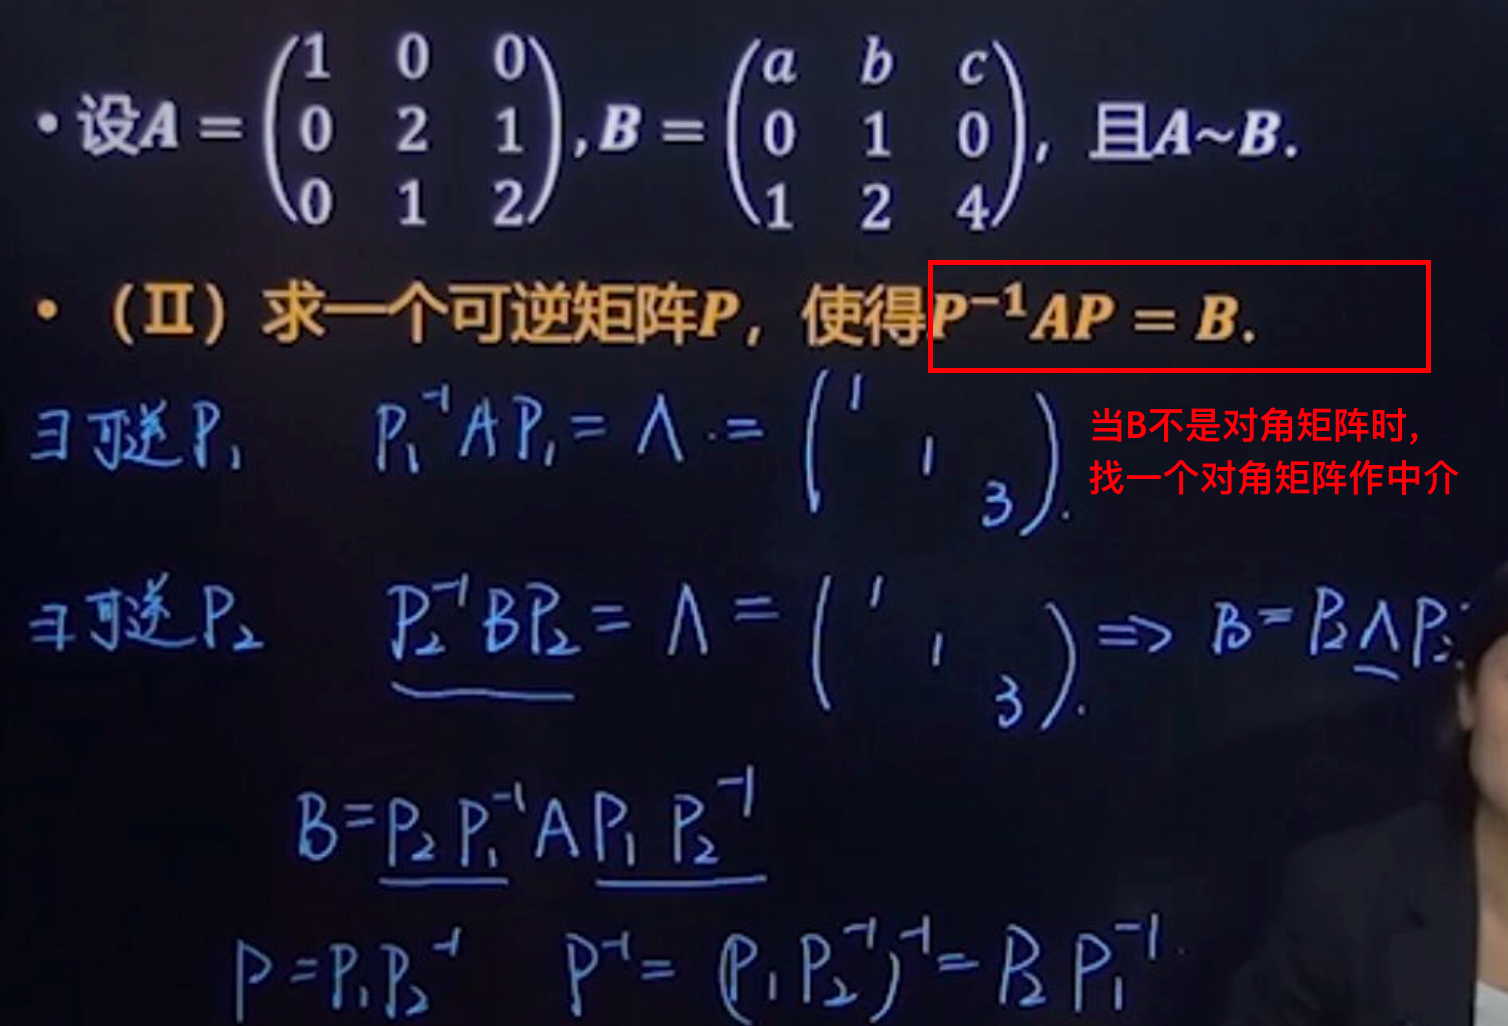 • 设A = (1 0 0; 0 2 1; 0 1 2), B = (a b c; 0 1 0; 1 2 4), 且A~B.
• （Ⅱ）求一个可逆矩阵P，使得P⁻¹AP = B.
∃可逆P₁ P₁⁻¹AP₁ = Λ = (1 1 3).
当B不是对角矩阵时，
找一个对角矩阵作中介
∃可逆P₂ P₂⁻¹BP₂ = Λ = (1 1 3). => B = P₂ΛP₂
B = P₂P₁⁻¹AP₁P₂⁻¹
P = P₁P₂⁻¹ P⁻¹ = (P₁P₂⁻¹)⁻¹ = P₂P₁⁻¹